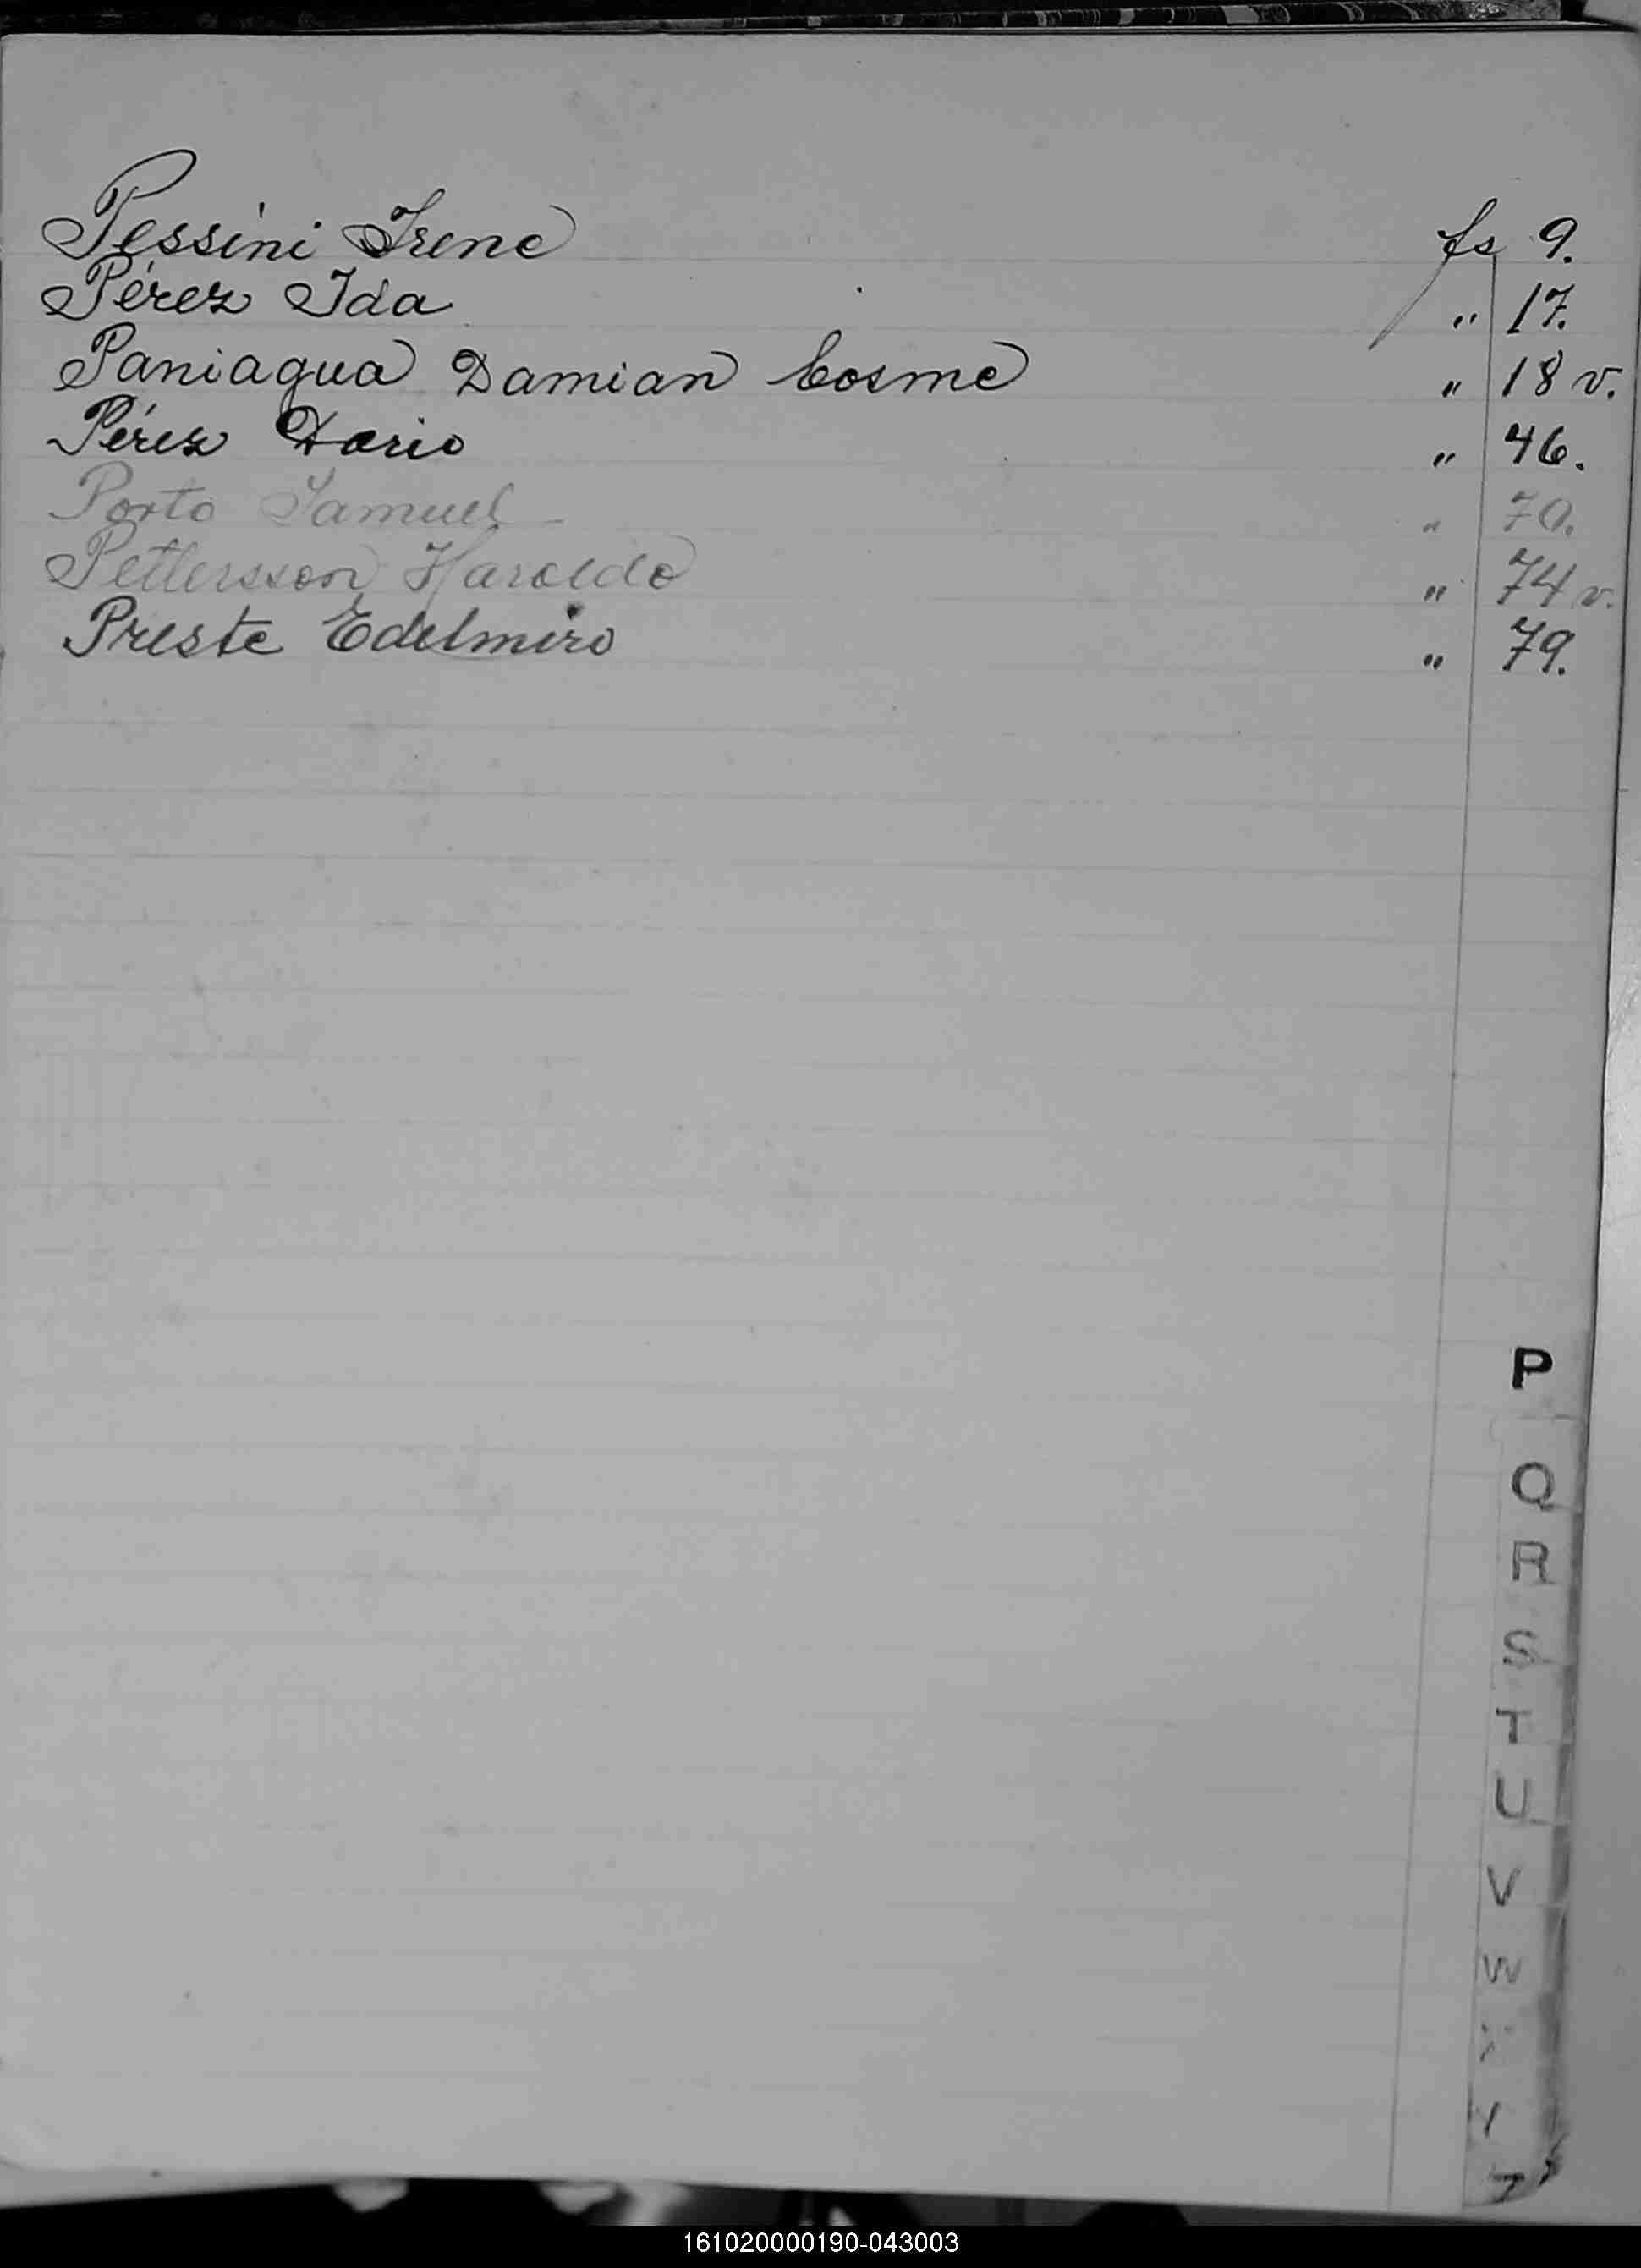 Pessini Irene fs 9.
Pérez Ida " 17.
Paniagua Damian Cosme " 18 v.
Pérez Dario " 46.
Porto Samuel " 70.
Pettersson Haroldo " 74 v.
Preste Edelmiro " 79.
P
Q
R
S
T
U
V
W
Y
Z
161020000190-043003